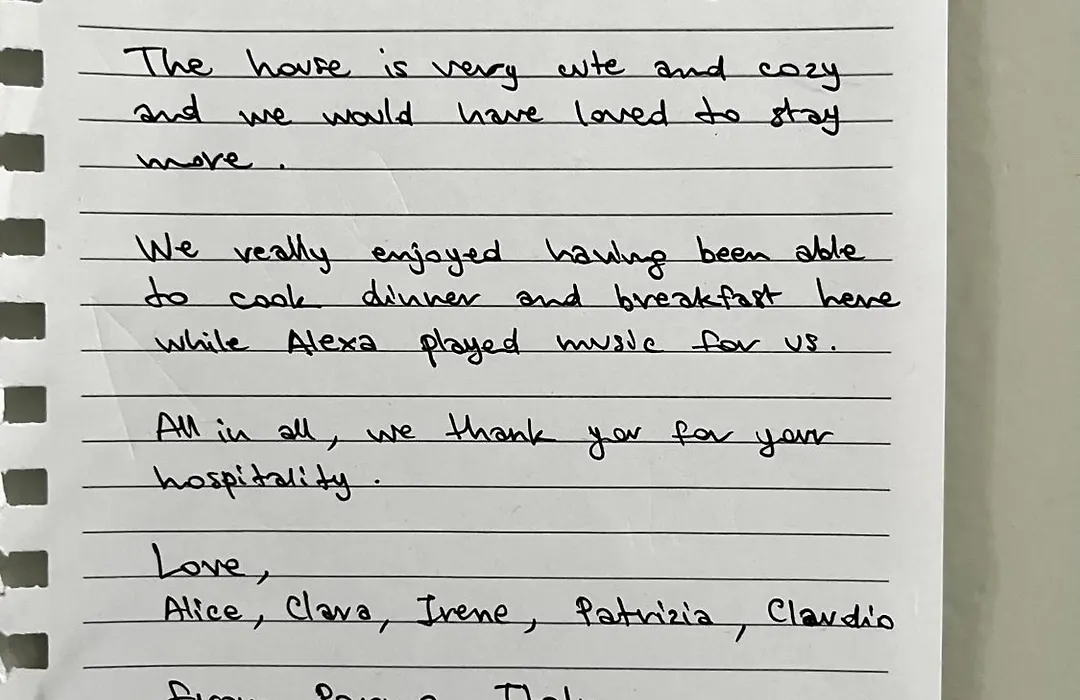 The house is very cute and cozy
and we would have loved to stay
more.
We really enjoyed having been able
to cook dinner and breakfast here
while Alexa played music for us.
All in all, we thank you for your
hospitality.
Love,
Alice, Clara, Irene, Patrizia, Claudio
from